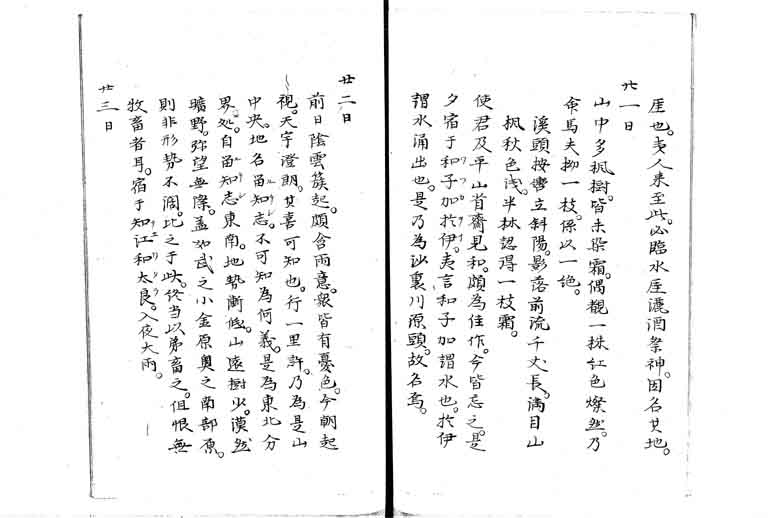 厓也。夷人来至此。必臨水厓灑酒祭神。因名其地。
廿一日
山中多楓樹。皆未染霜。偶覩一株紅色燦然。乃
命馬夫拗一枝。係以一絶。
溪頭按轡立斜陽。影落前流千丈長。満目山
楓秋色浅。半林認得一枝霜。
使君及平山首齋見和。頗為佳作。今皆忘之。是
夕宿于和子加於伊。夷言和子加謂水也。於伊
謂水涌出也。是乃為沙裏川源頭。故名焉。
廿二日
前日陰雲簇起。頗含雨意。衆皆有憂色。今朝起
視。天宇澄朗。其喜可知也。行一里許。乃為是山
中央。地名留知志。不可知為何義。是為東北分
界処。自留知志東南。地勢漸低。山遠樹少。漠然
曠野。弥望無際。蓋如武之小金原奥之南部原。
則非形勢不濶。比之于此。終当以弟畜之。但恨無
牧畜者耳。宿于知江和太良。入夜大雨。
廿三日